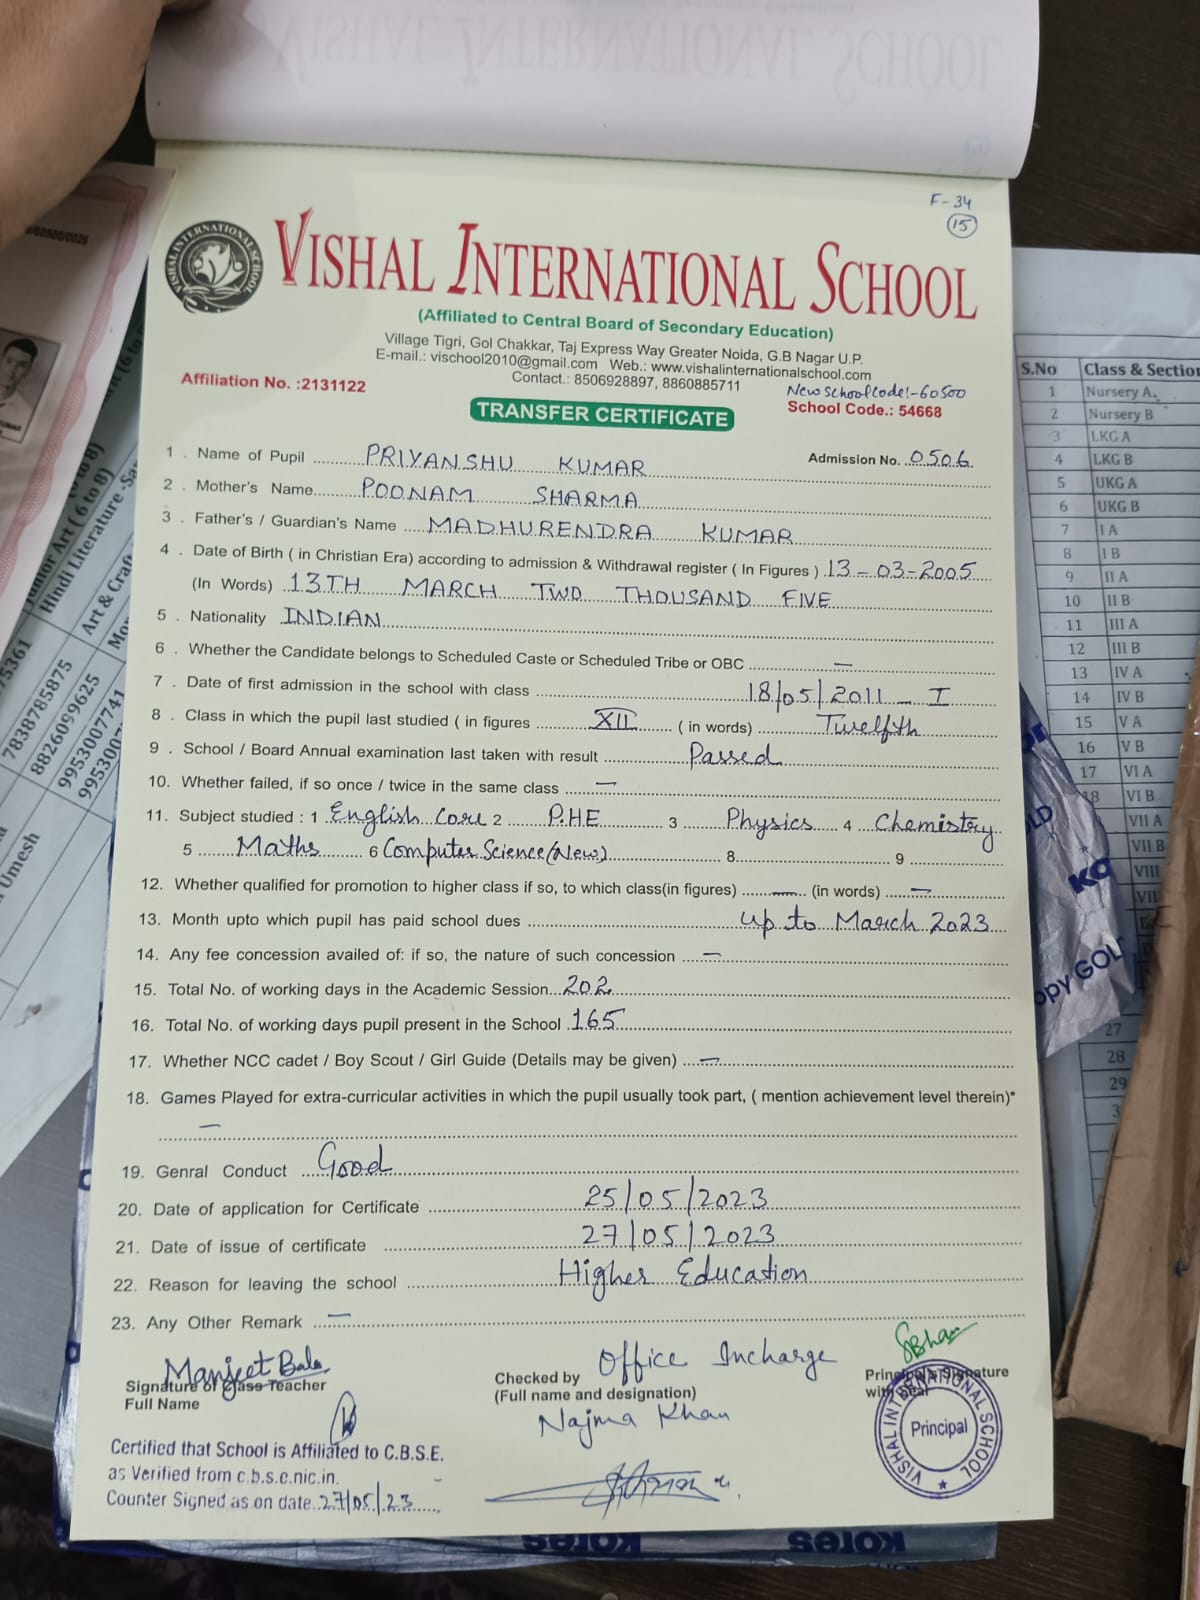 F-34
15
VISHAL INTERNATIONAL SCHOOL
VISHAL INTERNATIONAL SCHOOL
(Affiliated to Central Board of Secondary Education)
Village Tigri, Gol Chakkar, Taj Express Way Greater Noida, G.B Nagar U.P.
E-mail.: vischool2010@gmail.com Web.: www.vishalinternationalschool.com
Contact.: 8506928897, 8860885711
Affiliation No. :2131122
New School Code:-60500
School Code.: 54668
TRANSFER CERTIFICATE
1 . Name of Pupil PRIYANSHU KUMAR Admission No. 0506
2 . Mother's Name POONAM SHARMA
3 . Father's / Guardian's Name MADHURENDRA KUMAR
4 . Date of Birth ( in Christian Era) according to admission & Withdrawal register ( In Figures ) 13-03-2005
(In Words) 13TH MARCH TWO THOUSAND FIVE
5 . Nationality INDIAN
6 . Whether the Candidate belongs to Scheduled Caste or Scheduled Tribe or OBC —
7 . Date of first admission in the school with class 18/05/2011 - I
8 . Class in which the pupil last studied ( in figures XII ( in words) Twelfth
9 . School / Board Annual examination last taken with result Passed
10. Whether failed, if so once / twice in the same class —
11. Subject studied : 1 English Core 2 P.HE 3 Physics 4 Chemistry
5 Maths 6 Computer Science(New) 8 9
12. Whether qualified for promotion to higher class if so, to which class(in figures) — (in words) —
13. Month upto which pupil has paid school dues up to March 2023
14. Any fee concession availed of: if so, the nature of such concession —
15. Total No. of working days in the Academic Session 202
16. Total No. of working days pupil present in the School 165
17. Whether NCC cadet / Boy Scout / Girl Guide (Details may be given) —
18. Games Played for extra-curricular activities in which the pupil usually took part, ( mention achievement level therein)*
—
19. Genral Conduct Good
20. Date of application for Certificate 25/05/2023
21. Date of issue of certificate 27/05/2023
22. Reason for leaving the school Higher Education
23. Any Other Remark —
Manjeet Bala
Signature of Class Teacher
Full Name
Office Incharge
Checked by
(Full name and designation)
Najma Khan
Principal's Signature
with Seal
VISHAL INTERNATIONAL SCHOOL
Principal
Certified that School is Affiliated to C.B.S.E.
as Verified from c.b.s.e.nic.in.
Counter Signed as on date 27/05/23
S.No Class & Section
1 Nursery A
2 Nursery B
3 LKG A
4 LKG B
5 UKG A
6 UKG B
7 I A
8 I B
9 II A
10 II B
11 III A
12 III B
13 IV A
14 IV B
15 V A
16 V B
17 VI A
18 VI B
VII A
VII B
VIII
27
28
29
Junior Art ( 6 to 8)
Hindi Literature
Art & Craft
7838785875
8826099625
9953007741
Umesh
Kores
Kores